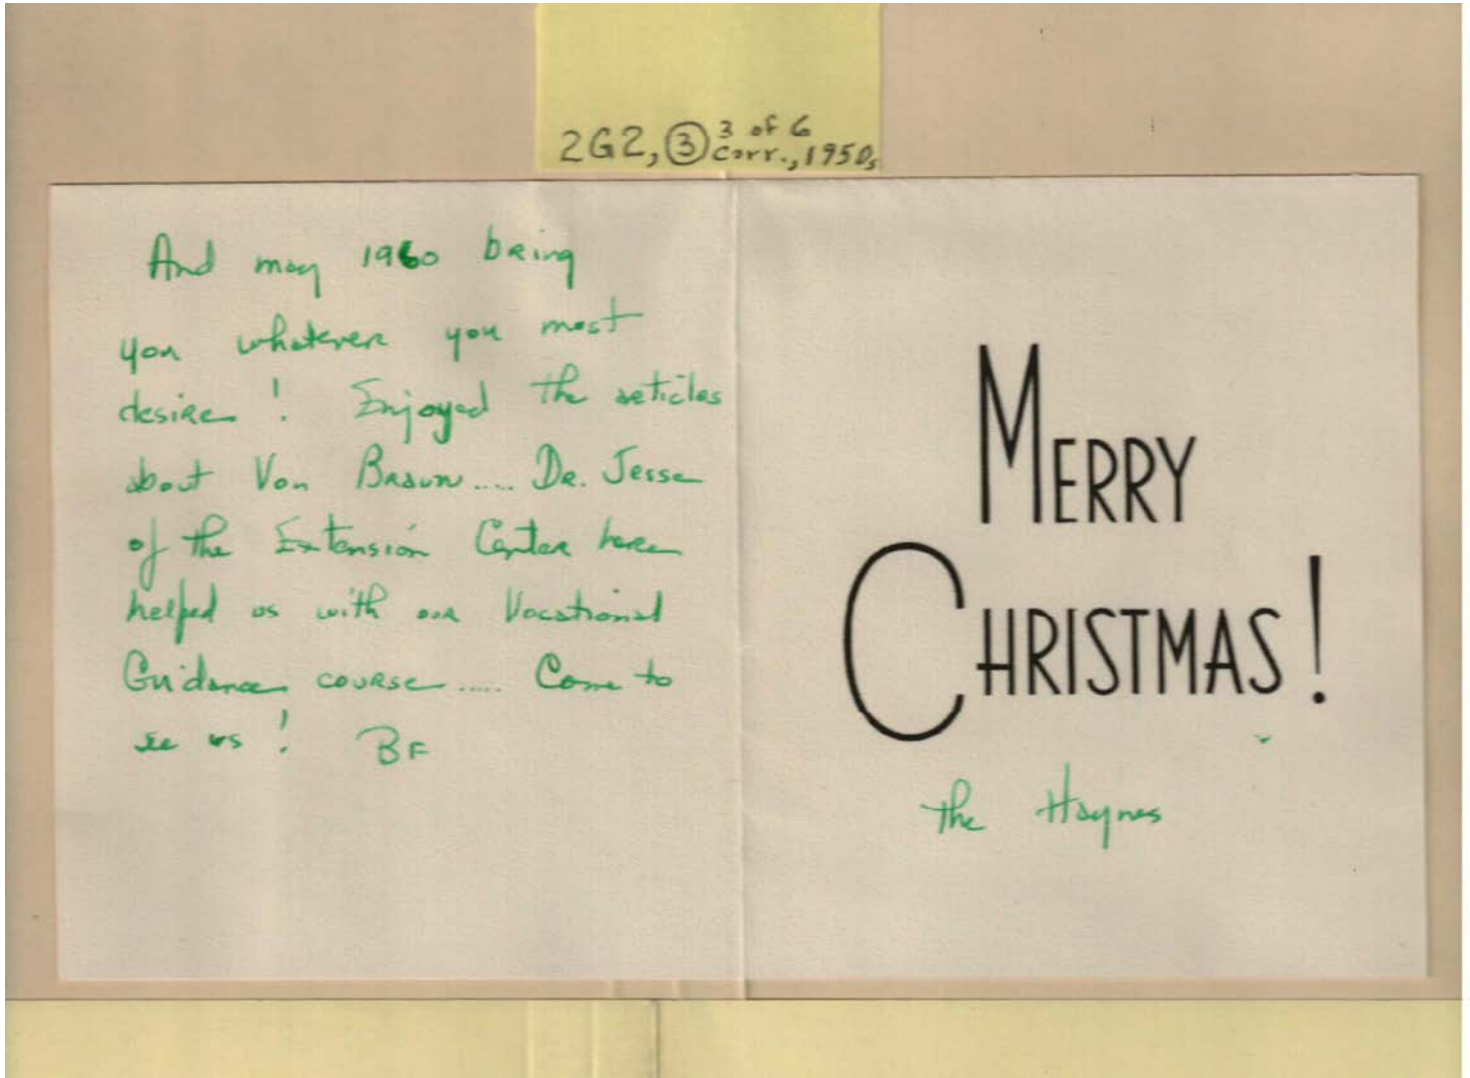 2G2, ③ 3 of 6
Corr., 1950s
And may 1960 bring
you whatever you most
desire! Enjoyed the articles
about Von Braun.... Dr. Jesse
of the Extension Center here
helped us with our Vocational
Guidance course..... Come to
see us! BF
MERRY
CHRISTMAS!
The Haynes